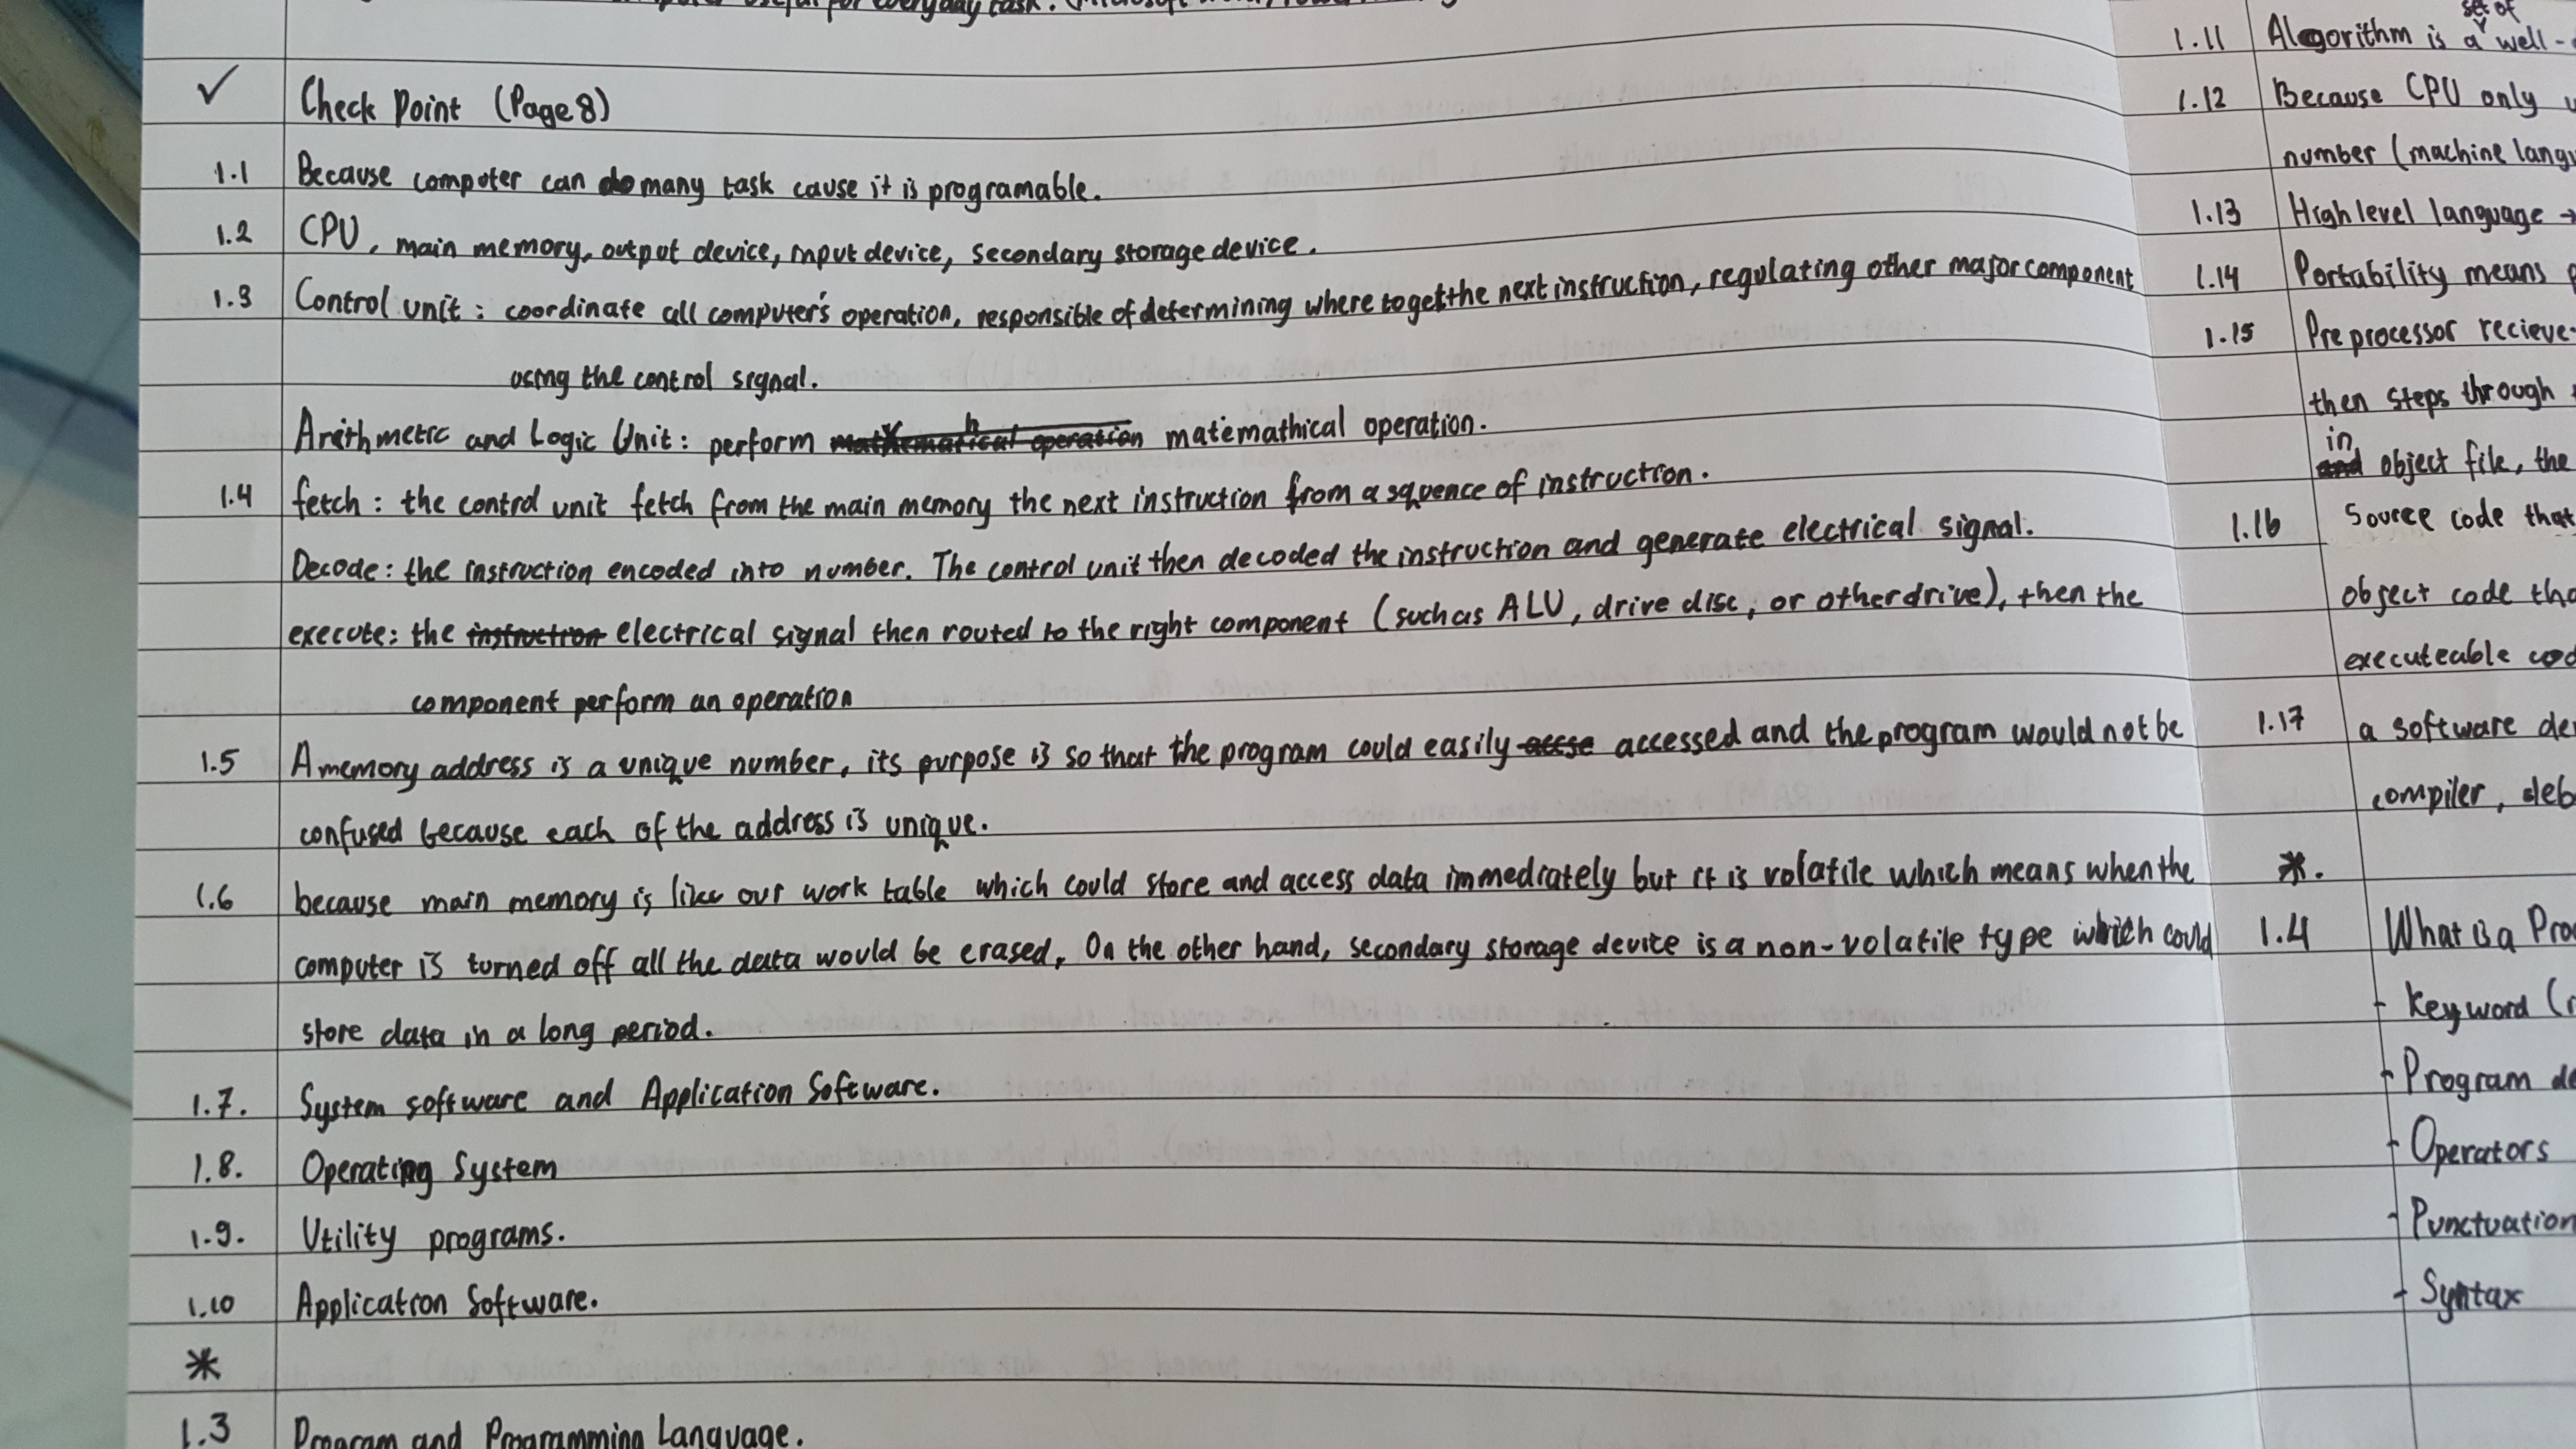 useful for everyday task.
✓ Check Point (Page 8)
1.1 Because computer can do many task cause it is programable.
1.2 CPU, main memory, output device, input device, secondary storage device.
1.3 Control unit : coordinate all computer's operation, responsible of determining where to get the next instruction, regulating other major component
using the control signal.
Arithmetic and Logic Unit : perform mathematical operation matemathical operation.
1.4 fetch : the control unit fetch from the main memory the next instruction from a squence of instruction.
Decode : the instruction encoded into number. The control unit then decoded the instruction and generate electrical signal.
execute : the instruction electrical signal then routed to the right component (such as ALU, drive disc, or other drive), then the
component perform an operation
1.5 A memory address is a unique number, its purpose is so that the program could easily accse accessed and the program would not be
confused because each of the address is unique.
1.6 because main memory is like our work table which could store and access data immediately but it is volatile which means when the
computer is turned off all the data would be erased, On the other hand, secondary storage device is a non-volatile type which could
store data in a long period.
1.7. System software and Application Software.
1.8. Operating System
1.9. Utility programs.
1.10 Application Software.
*
1.3 Program and Programming Language.
1.11 Algorithm is a set of well-
1.12 Because CPU only
number (machine
1.13 High level language →
1.14 Portability means
1.15 Preprocessor recieve
then steps through
and in object file, the
1.16 Source code that
object code
executeable
1.17 a software
compiler,
*.
1.4 What is a
- Keyword
- Program
- Operators
- Punctuation
- Syntax